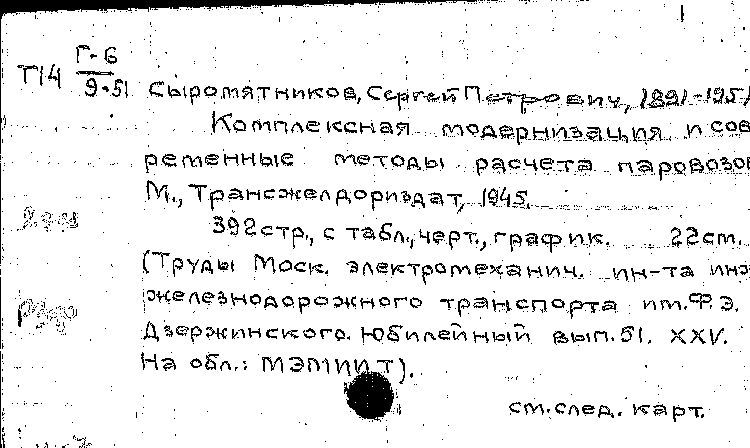 Т14 Г-6
9-51
Сыромятников, Сергей Петрович, 1891-1951
Комплексная модернизация и сов
ременные методы расчета паровозов
М., Трансжелдориздат, 1945.
392 стр., с табл., черт., график. 22 см.
(Труды Моск. электромеханич. ин-та инж
железнодорожного транспорта им. Ф. Э.
Дзержинского. Юбилейный вып. 51. XXV.
На обл.: МЭМИИТ).
см. след. карт.